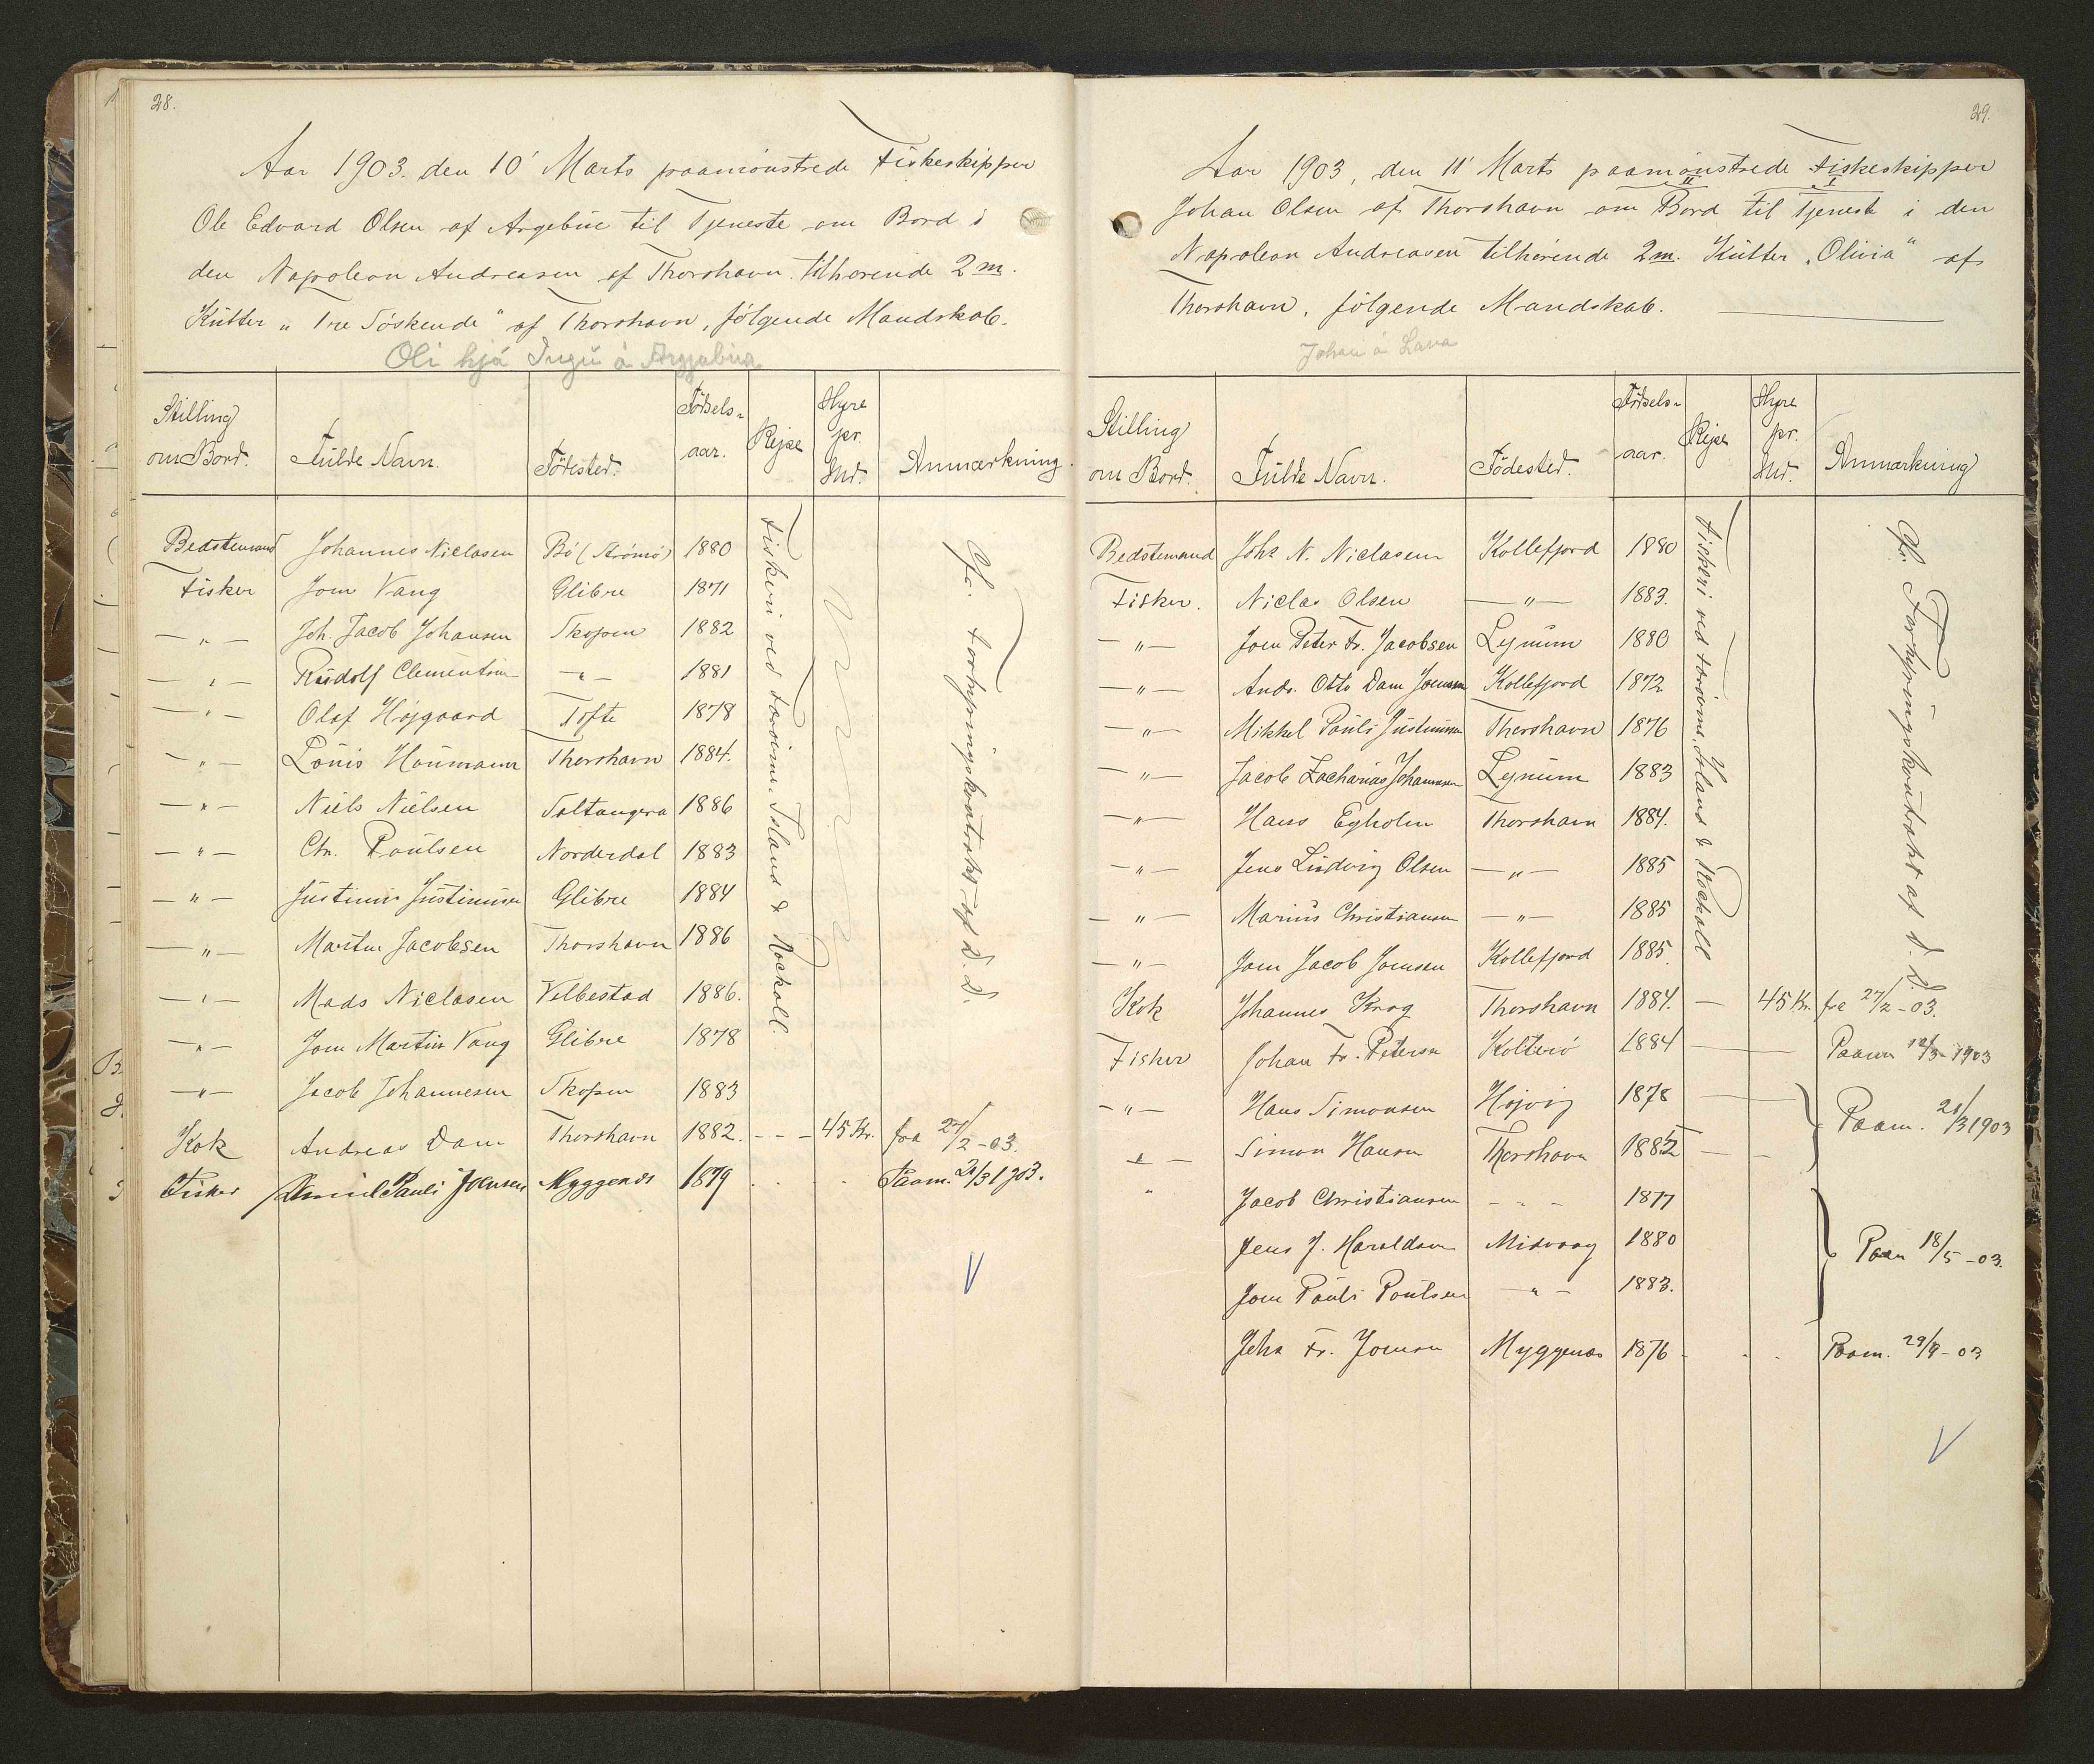 28.
Aar 1903. den 10' Marts paamönstrede Fiskeskipper
Ole Edvard Olsen af Argebue til Tjeneste om Bord i
den Napoleon Andreasen af Thorshavn tilhørende 2 m.
Kutter „Tre Söskende" af Thorshavn, følgende Mandskab.
Oli hjá Ingu á Argjabua
Stilling om Bord. Fulde Navn. Födested. Födsels-aar. Rejse Hyre pr. Md. Anmærkning.
Bedstemand Johannes Niclasen Bö (Strömö) 1880
Fisker Joen Vang Glibre 1871
— „ — Joh. Jacob Johansen Skopen 1882
— „ — Rudolf Clementsen — „ — 1881
— „ — Olaf Højgaard Tofte 1878
— „ — Louis Houmann Thorshavn 1884.
— „ — Niels Nielsen Saltangera 1886
— „ — Chr. Poulsen Norderdal 1883
— „ — Justinus Justinusen Glibre 1884
— „ — Martin Jacobsen Thorshavn 1886
— „ — Mads Niclasen Velbestad 1886.
— „ — Joen Martin Vang Glibre 1878
— „ — Jacob Johannesen Skopen 1883
Kok Andreas Dam Thorshavn 1882. - - - 45 Kr. fra 27/2 - 03.
Fisker Pauli Joensen Myggenæs 1879 . . . Paam. 21/3 1903.
Fiskeri ved Færöerne, Island & Rockall.
Cfr. Forhyringskontrakt af D. D.
29.
Aar 1903, den 11' Marts paamönstrede Fiskeskipper
Johan Olsen af Thorshavn om Bord til Tjeneste i den
Napoleon Andreasen tilhørende 2 m. Kutter „Olivia" af
Thorshavn, følgende Mandskab.
Johan á Lava
Stilling om Bord. Fulde Navn. Födested. Födsels-aar. Rejse Hyre pr. Md. Anmærkning
Bedstemand Johs N. Niclasen Kollefjord 1880
Fisker. Niclas Olsen — „ — 1883.
— „ — Joen Peter Fr. Jacobsen Lejnum 1880
— „ — Andr. Otto Dam Joensen Kollefjord 1872
— „ — Mikkel Pauli Justinusen Thorshavn 1876
— „ — Jacob Zacharias Johannesen Lejnum 1883
— „ — Hans Egholm Thorshavn 1884.
— „ — Jens Ludvig Olsen — „ — 1885
— „ — Marius Christiansen — „ — 1885
— „ — Joen Jacob Joensen Kollefjord 1885.
Kok Johannes Krog Thorshavn 1884. — 45 Kr. fra 27/2 - 03.
Fisker Johan Fr. Petersen Kolterö 1884 — Paam 12/3 - 1903
— „ — Hans Simonsen Hojvig 1878 — } Paam. 21/3 1903
— „ — Simon Hansen Thorshavn 1882 — —
„ Jacob Christiansen - - - 1877
Jens J. Haraldsen Midvaag 1880 } Paam 18/5 - 03.
Joen Pauli Poulsen — „ — 1883.
Johs Fr. Joensen Myggenæs 1876 . . . Paam. 29/8 - 03
Fiskeri ved Færöerne, Island & Rockall
Cfr. Forhyringskontrakt af d. D.